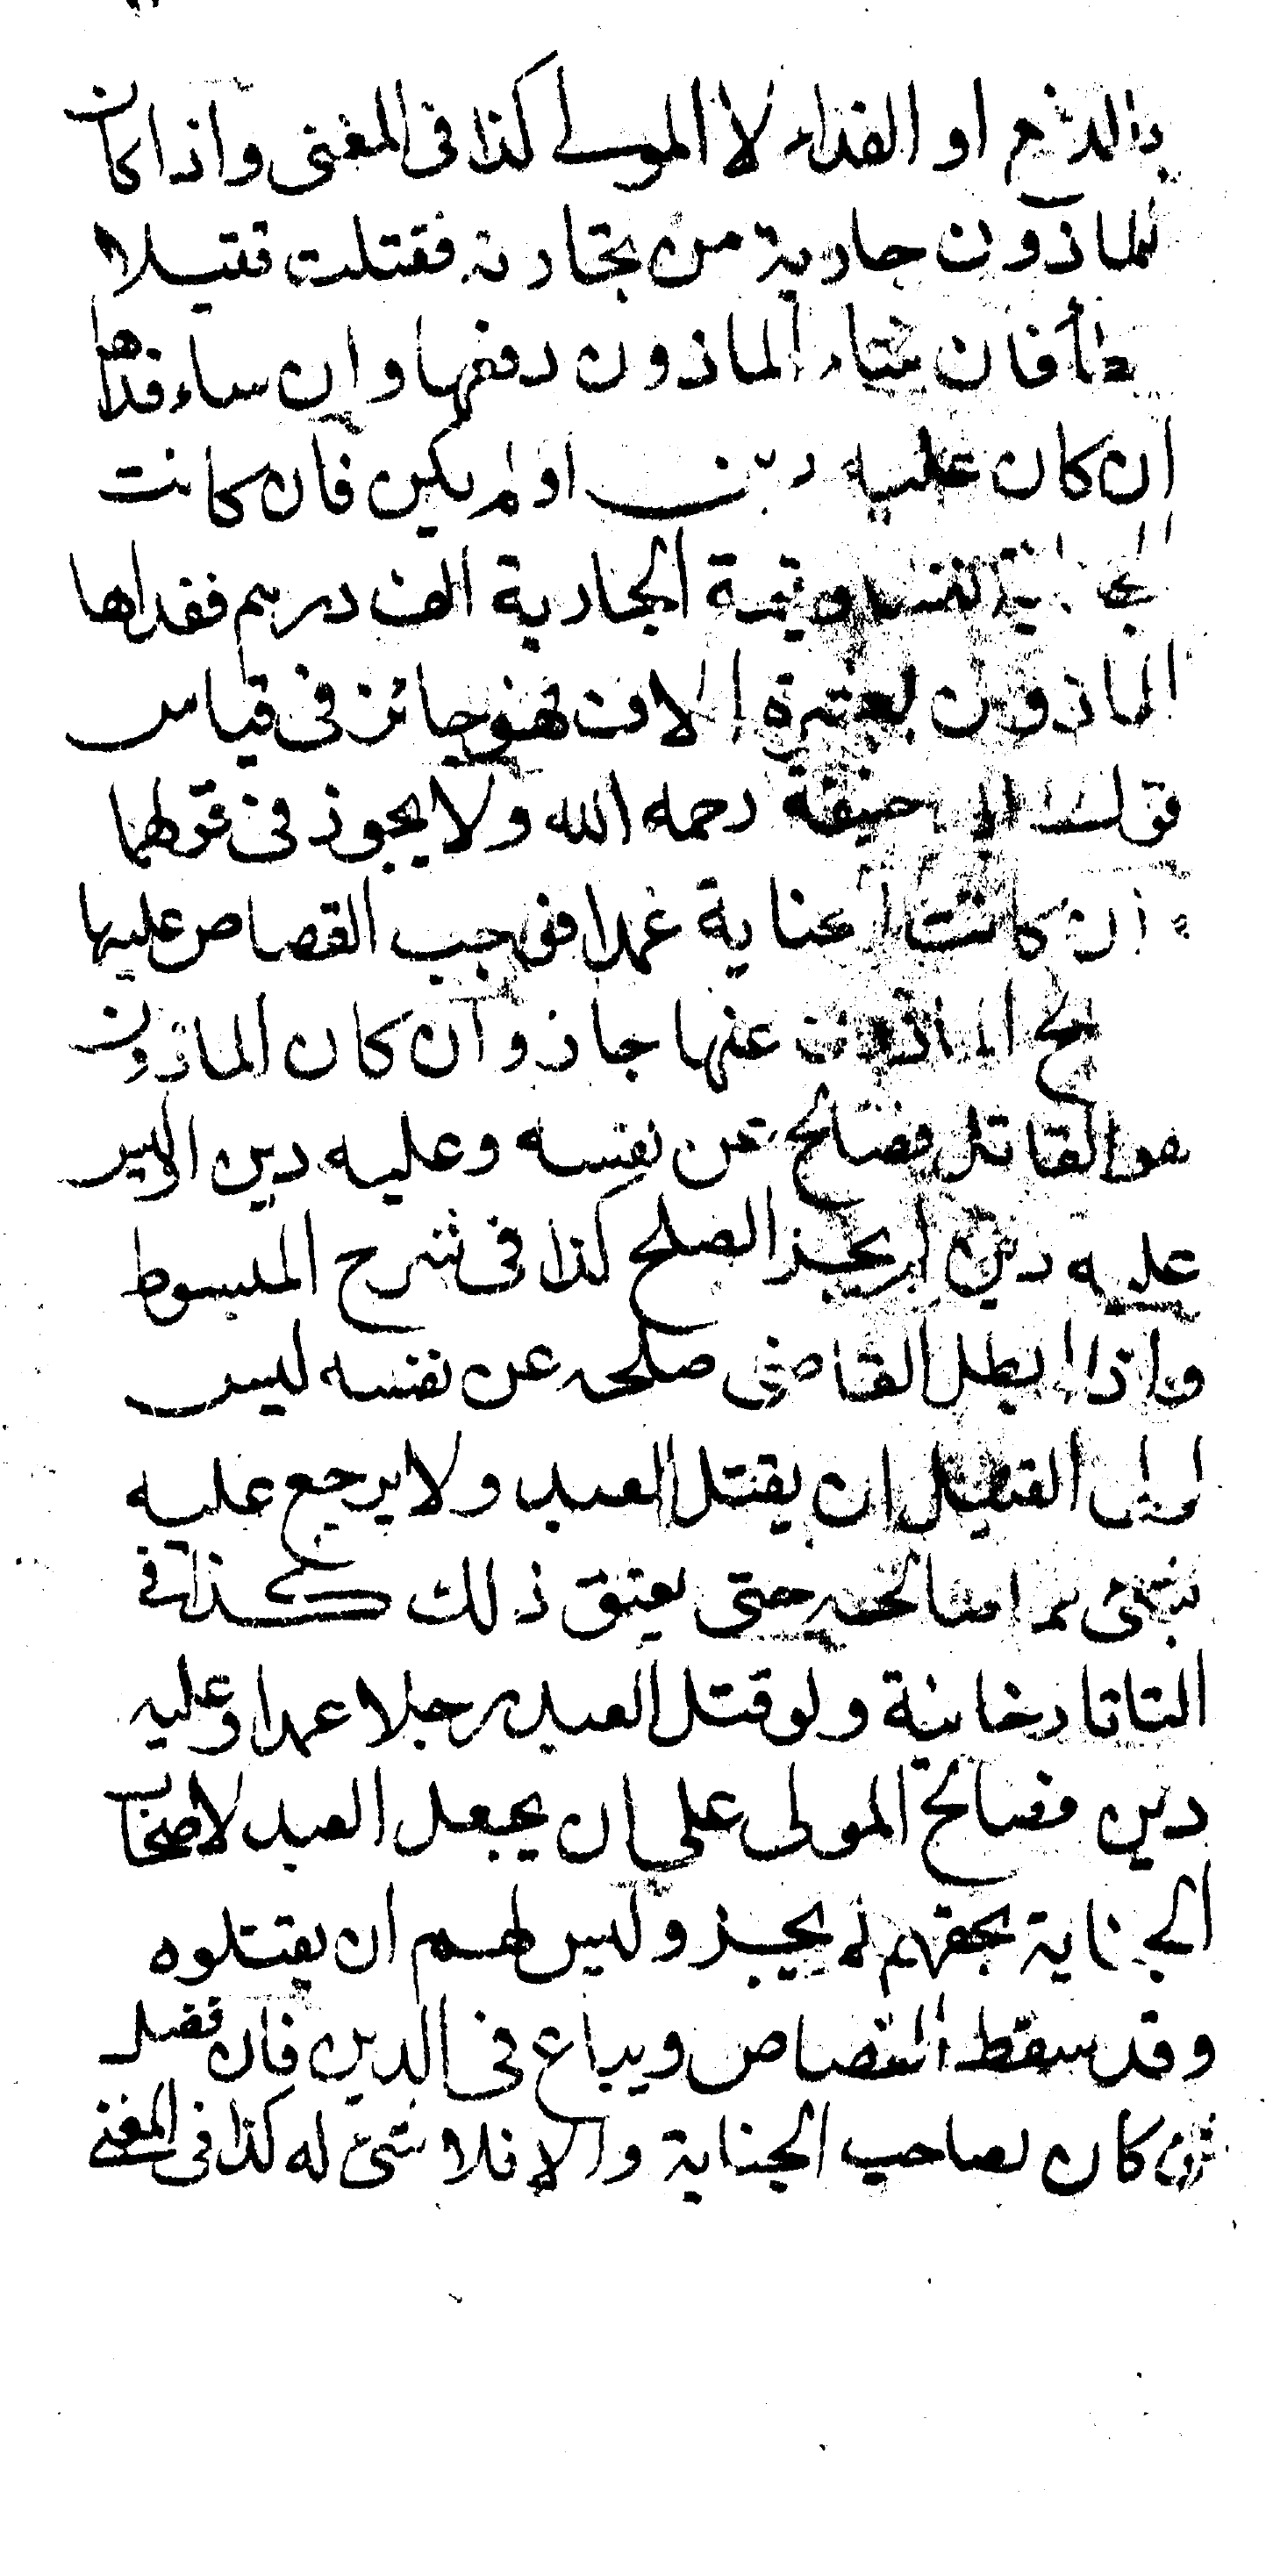 بالدفع او الفداء لا المولى كذا فى المغنى واذا كان
للماذون جارية من تجارته فقتلت قتيلا
خطأ فان شاء الماذون دفعها وان ساء فداها
ان كان عليه دين اولم يكن فان كانت
الجناية نفسا وقيمة الجارية الف درهم ففداها
الماذون بعشرة الاف فهو جائز فى قياس
قول ابى حنيفة رحمه الله ولا يجوز فى قولهما
وان كانت الجناية عمدا فوجب القصاص عليها
الماذون عنها جاز وان كان الماذون
هو القاتل فصالح عن نفسه وعليه دين اوليس
عليه دين لم يجز الصلح كذا فى شرح المبسوط
واذا ابطل القاضى صلحه عن نفسه ليس
لولى القتيل ان يقتل العبد ولا يرجع عليه
بشئ مما صالحه حتى يعتق ذلك كذا فى
التاتارخانية ولو قتل العبد رجلا عمدا وعليه
دين فصالح المولى على ان يجعل العبد لاصحاب
الجناية بحقهم لم يجز وليس لهم ان يقتلوه
وقد سقط القصاص ويباع فى الدين فان فضل
كان لصاحب الجناية والا فلا شئ له كذا فى المغنى